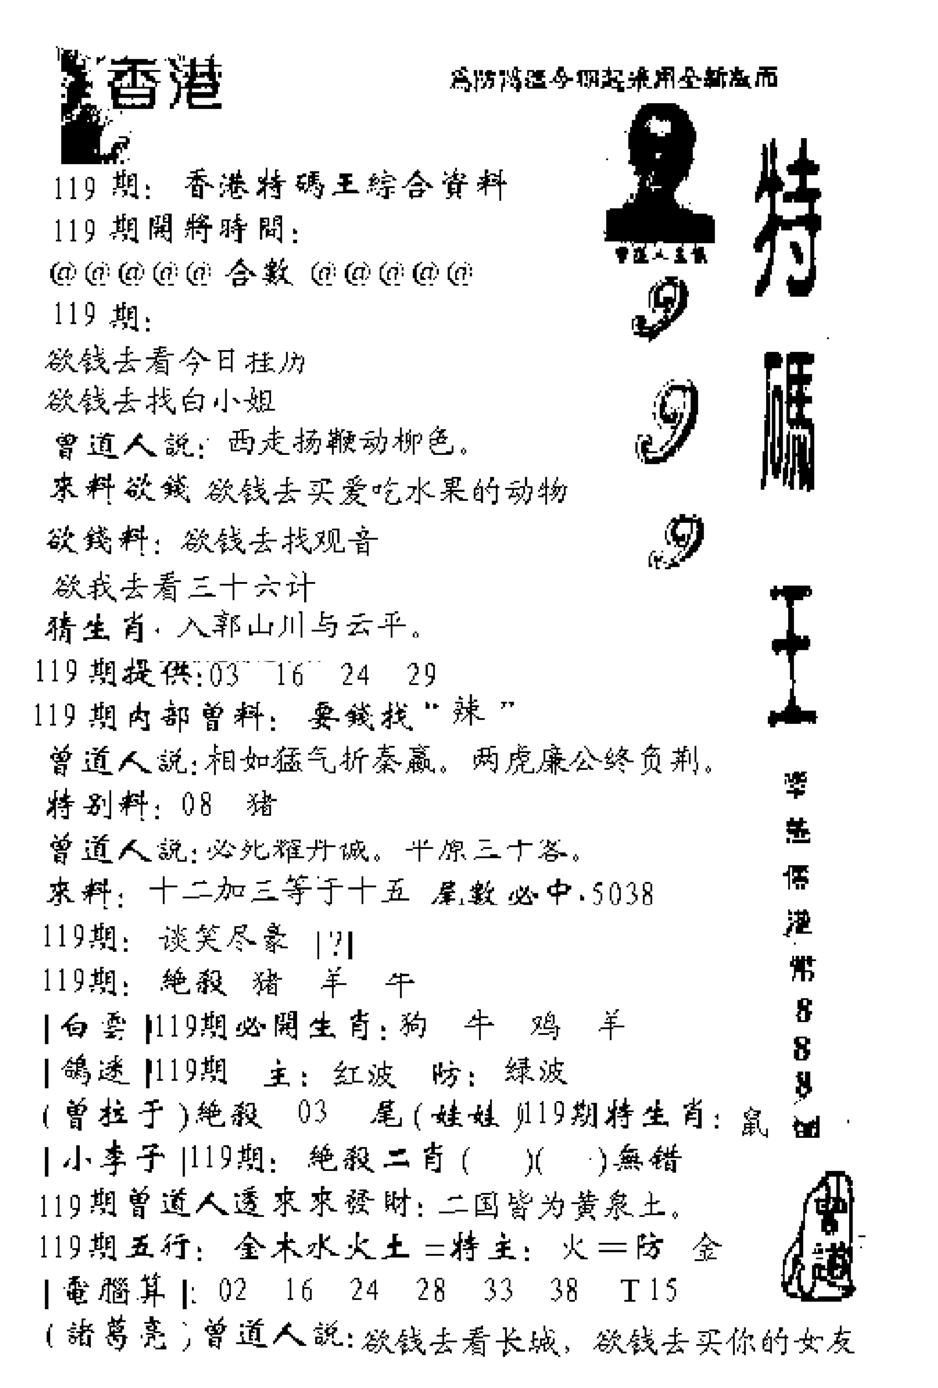 香港
為防濫今期起采用全新版面
119 期: 香港特碼王綜合資料
119 期開將時間:
@@@@@ 合數 @@@@@
119 期:
欲钱去看今日挂历
欲钱去找白小姐
曾道人説: 西走扬鞭动柳色。
來料欲錢 欲钱去买爱吃水果的动物
欲錢料: 欲钱去找观音
欲我去看三十六计
猜生肖. 入郭山川与云平。
119 期提供:03 16 24 29
119 期内部曾料: 要錢找“辣”
曾道人説:相如猛气折秦赢。两虎廉公终负荆。
特别料: 08 猪
曾道人説:必死耀丹诚。平原三十客。
來料: 十二加三等于十五 尾數必中.5038
119期: 谈笑尽豪 |?|
119期: 絶殺 猪 羊 牛
|白雲|119期必開生肖:狗 牛 鸡 羊
|鴿迷|119期 主: 红波 防: 绿波
(曾拉于)絶殺 03 尾(娃娃)119期特生肖: 鼠
|小李子|119期: 絶殺二肖( )( )無错
119期曾道人透來來發財:二国皆为黄泉土。
119期五行: 金木水火土=特主: 火=防 金
|電腦算|: 02 16 24 28 33 38 T15
(諸葛亮)曾道人説:欲钱去看长城, 欲钱去买你的女友
曾道人主張
9
9
9
特碼王
港幣888
曾道